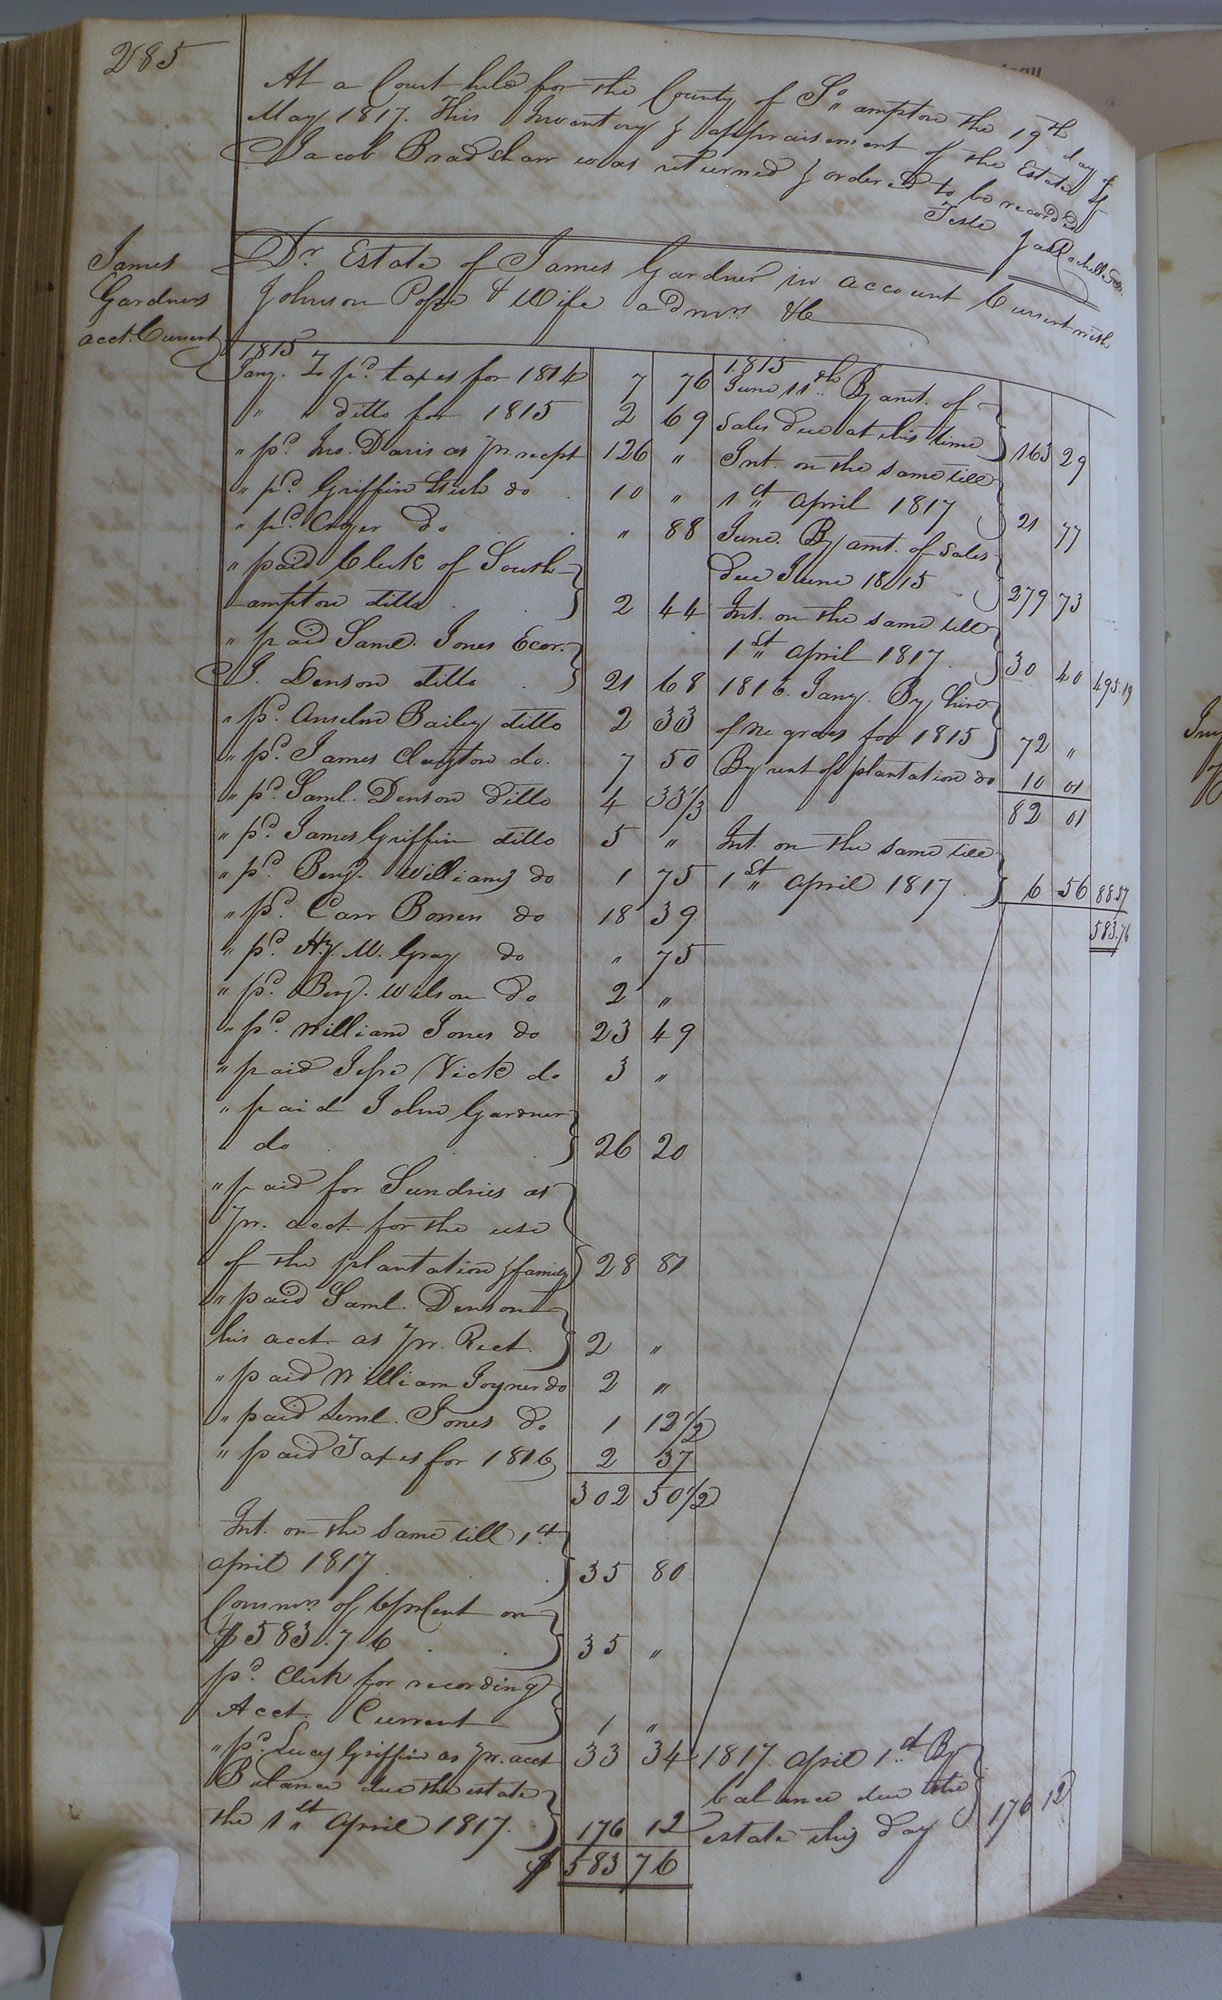 285
At a Court held for the County of So,,ampton the 19th day of
May 1817. This Inventory & appraisement of the Estate of
Jacob Bradshaw was returned & ordered to be recorded
Teste Jas Rochelle
James
Gardners
acct. Current
Dr. Estate of James Gardner in account Current with
Johnson Pope & Wife admrs. &C
1815
Jany. To pd. taxes for 1814 7 76
" " ditto for 1815 2 69
" pd. Jno. Davis as pr. recpt 126 "
" pd. Griffin Stith do 10 "
" pd. do " 88
" paid Clerk of South-
ampton ditto 2 44
" paid Saml. Jones Ecor.
J. Denson ditto 21 68
" pd. Anselm Bailey ditto 2 33
" pd. James Clayton do. 7 50
" pd. Saml. Denson Ditto 4 33 1/3
" pd. James Griffin ditto 5 "
" pd. Benj. Williams do 1 75
" pd. Carr Bowen do 18 39
" pd. Hy. W. Gray do " 75
" pd. Benj. Wilson do 2 "
" pd. William Jones do 23 49
" paid Jesse Vick do 3 "
" paid John Gardner
do 26 20
" paid for Sundries as
pr. acct. for the use
of the plantation & family 28 81
" paid Saml. Denson
his acct. as pr. Rect. 2 "
" paid William Joyner do 2 "
" paid Jones do 1 12 1/2
" paid Taxes for 1816 2 37
302 50 1/2
Int. on the same till 1st
april 1817 35 80
Commns. of 6 prCent on
$583.76 35 "
pd. Clerk for recording
Acct. Current 1 "
" pd. Lucy Griffin as pr. acct 33 34
Balance due the estate
the 1st,, April 1817. 176 12
$ 583 76
1815
June 11th. By amt. of
sales due at this time 163 29
Int. on the same till
1st,, april 1817 21 77
June. By amt. of sales
due June 1815 279 73
Int. on the same till
1st,, april 1817 30 40 495.19
1816. Jany. By hire
of negroes for 1815 72 "
By rent of plantation do 10 01
82 01
Int. on the same till
1st,, april 1817 6 56 88.57
583.76
1817. april 1st. By
balance due the
estate this day 176 12